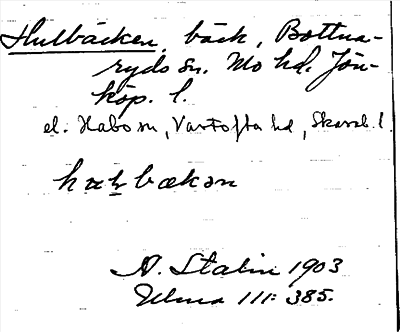 Hulbäcken, bäck, Bottna-
ryds sn. Mo hd. Jön-
köp. l.
el. Habo sn, Vartofta hd, Skarab. l.
bækən
A. Stalin 1903
111: 385.